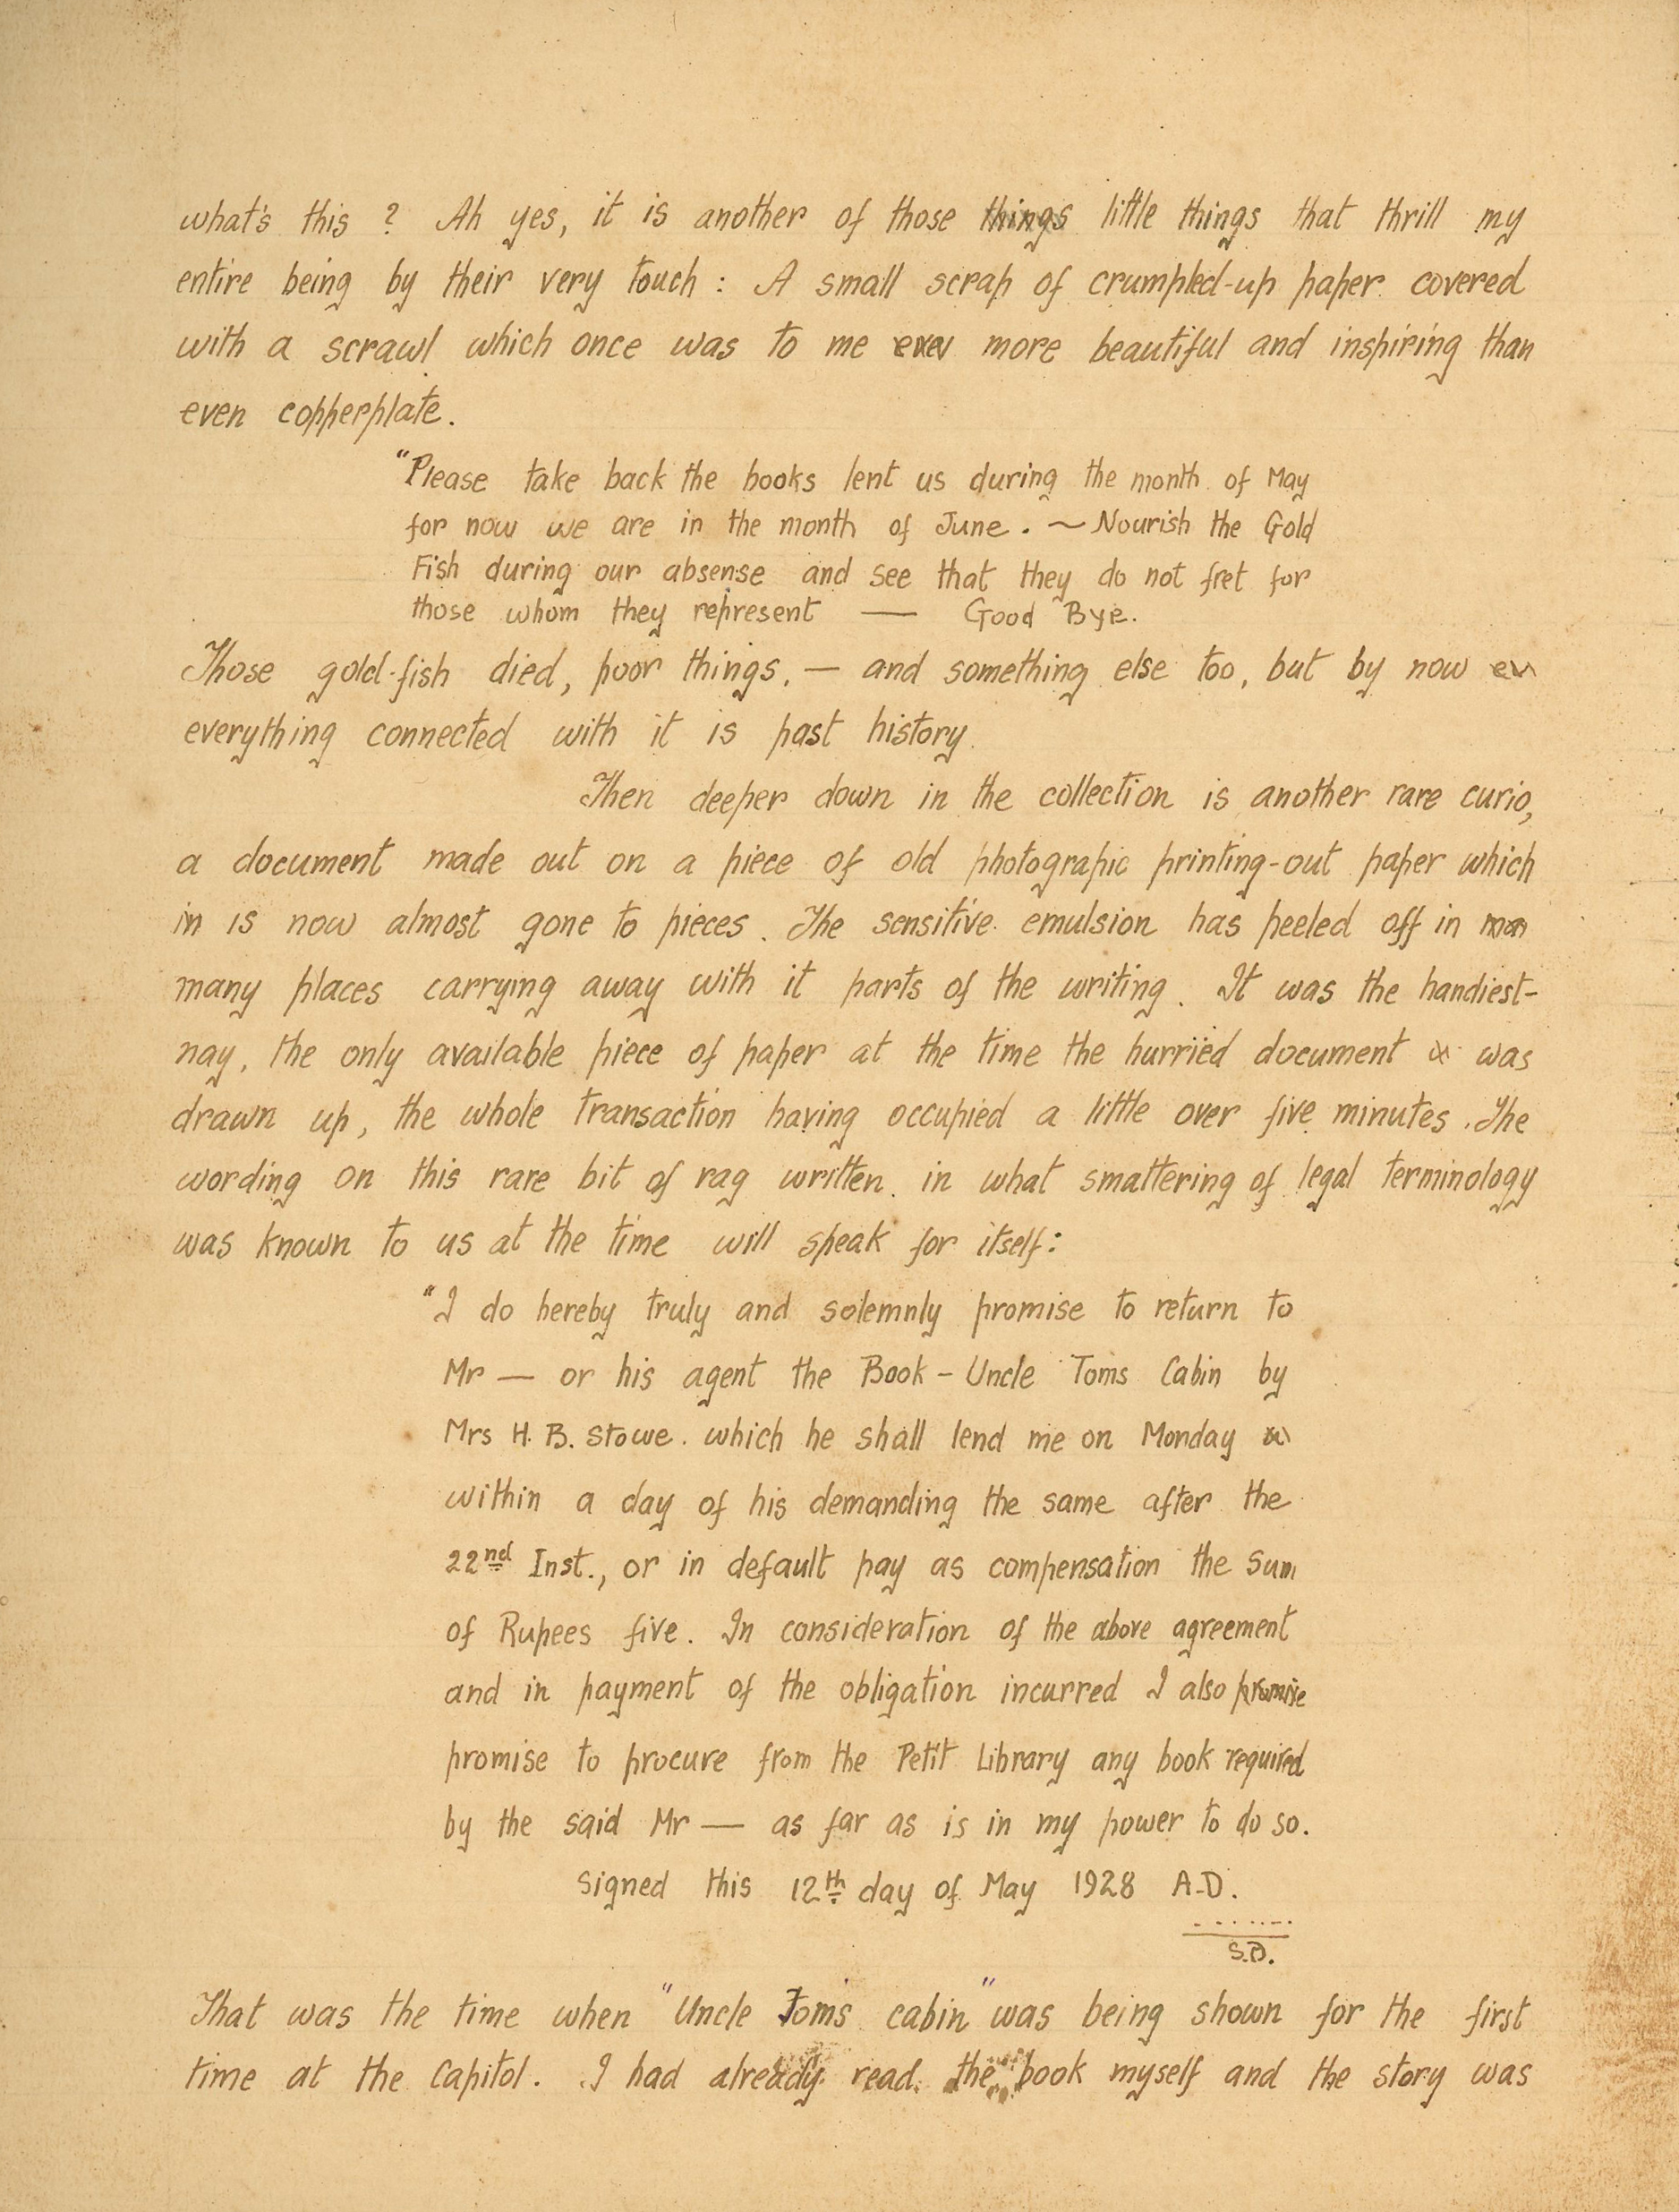 what's this ? Ah yes, it is another of those things little things that thrill my
entire being by their very touch : A small scrap of crumpled-up paper covered
with a scrawl which once was to me even more beautiful and inspiring than
even copperplate.
"Please take back the books lent us during the month of May
for now we are in the month of June. ~ Nourish the Gold
Fish during our absense and see that they do not fret for
those whom they represent — Good Bye.
Those gold-fish died, poor things. — and something else too, but by now ev
everything connected with it is past history.
Then deeper down in the collection is another rare curio,
a document made out on a piece of old photograpic printing-out paper which
in is now almost gone to pieces. The sensitive emulsion has peeled off in man
many places carrying away with it parts of the writing. It was the handiest-
nay, the only available piece of paper at the time the hurried document was
drawn up, the whole transaction having occupied a little over five minutes. The
wording on this rare bit of rag written in what smattering of legal terminology
was known to us at the time will speak for itself:
"I do hereby truly and solemnly promise to return to
Mr — or his agent the Book - Uncle Toms Cabin by
Mrs H. B. Stowe. which he shall lend me on Monday
within a day of his demanding the same after the
22nd Inst., or in default pay as compensation the sum
of Rupees five. In consideration of the above agreement
and in payment of the obligation incurred I also promise
promise to procure from the Petit Library any book required
by the said Mr — as far as is in my power to do so.
Signed this 12th day of May 1928 A.D.
.......
S.D.
That was the time when "Uncle Tom's cabin" was being shown for the first
time at the Capitol. I had already read the book myself and the story was